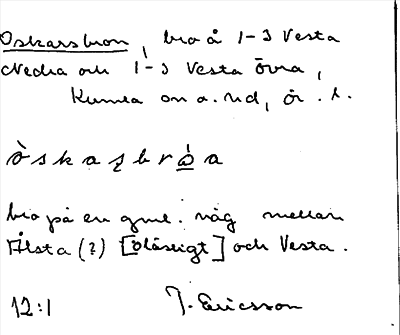 Oskarsbron, bro å 1-3 Vesta
Nedra och 1-3 Vesta Övra,
Kumla sn o. hd, Ör. l.
òskaʂbrὼ̲a
bro på en gml. väg mellan
Ålsta (?) [oläsligt] och Vesta.
12:1 J. Ericsson